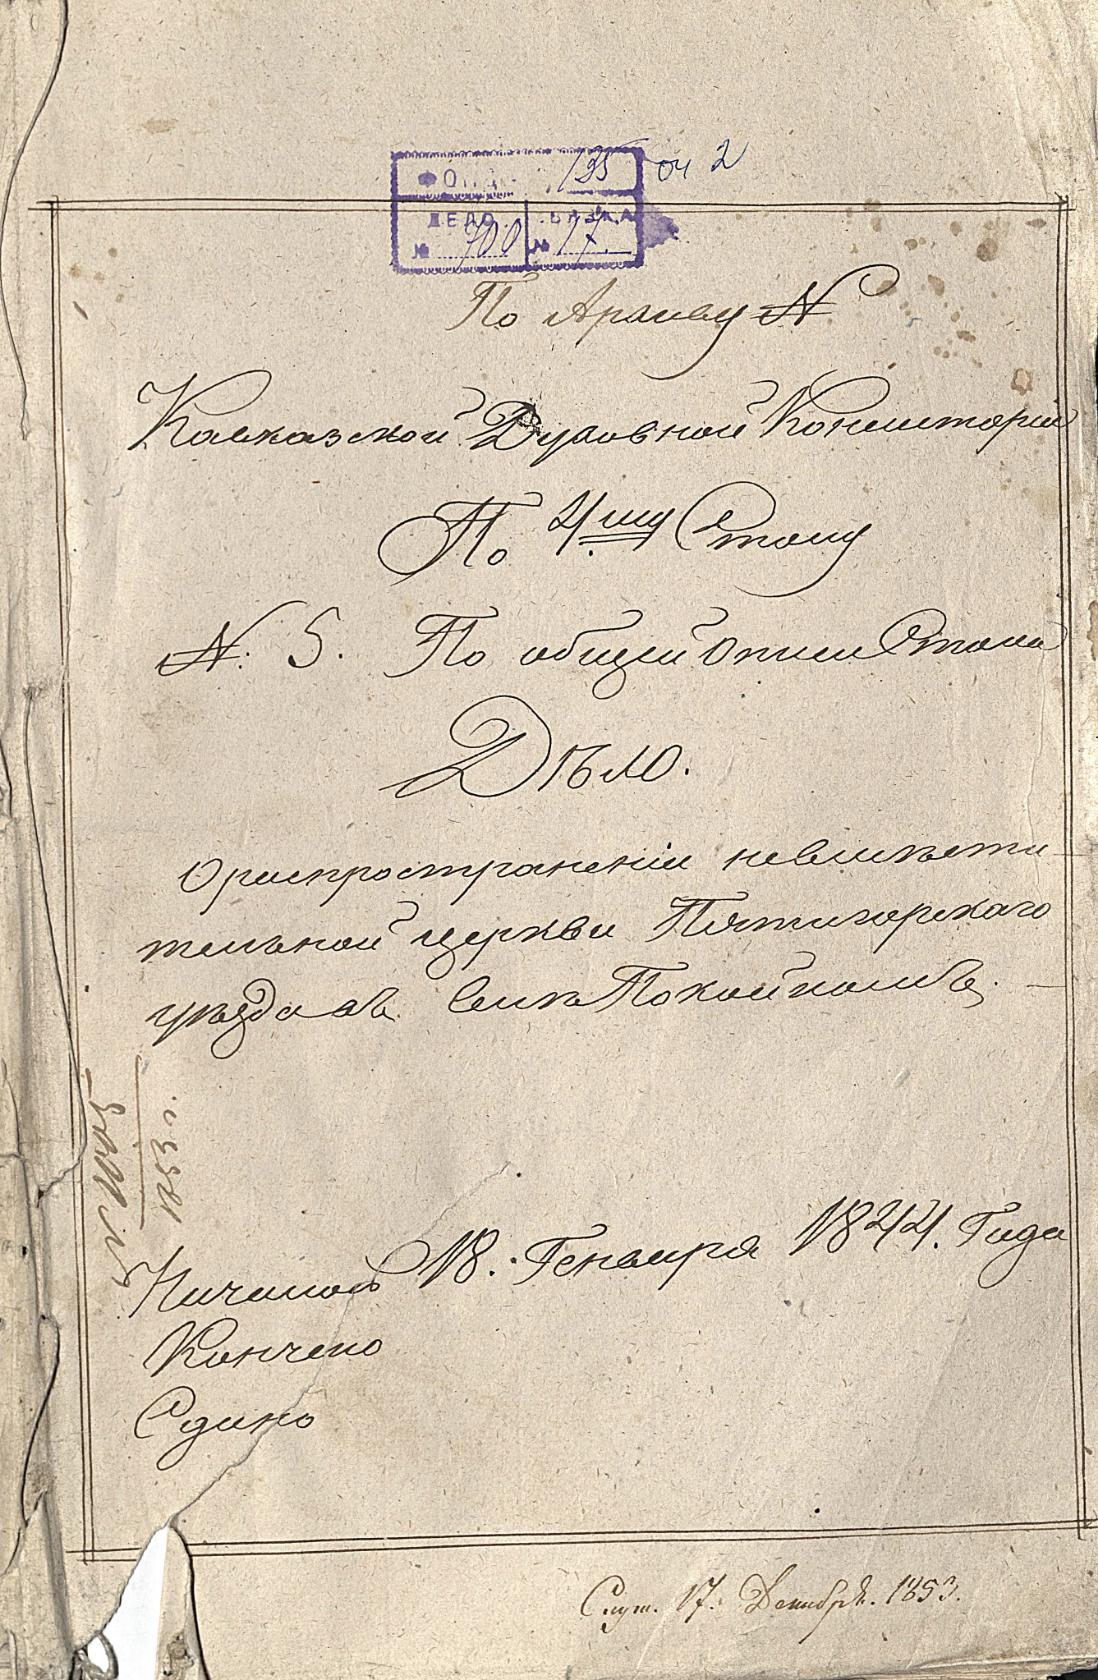 ФОНД 135 оп 2
ДЕЛО СВЯЗКА
№ 700 № 17
По Архиву №
Кавказской Духовной Консисторіи
По 4му Столу
№: 5. По общей описи Стола
Дѣло.
О распространеніи невмѣсти
тельной церкви Пятигорскаго
уѣзда въ селѣ Покойномъ.
1853 г.
Началось 18. Генваря 1844. Года
Кончено
Сдано
17. Декабря. 1853.